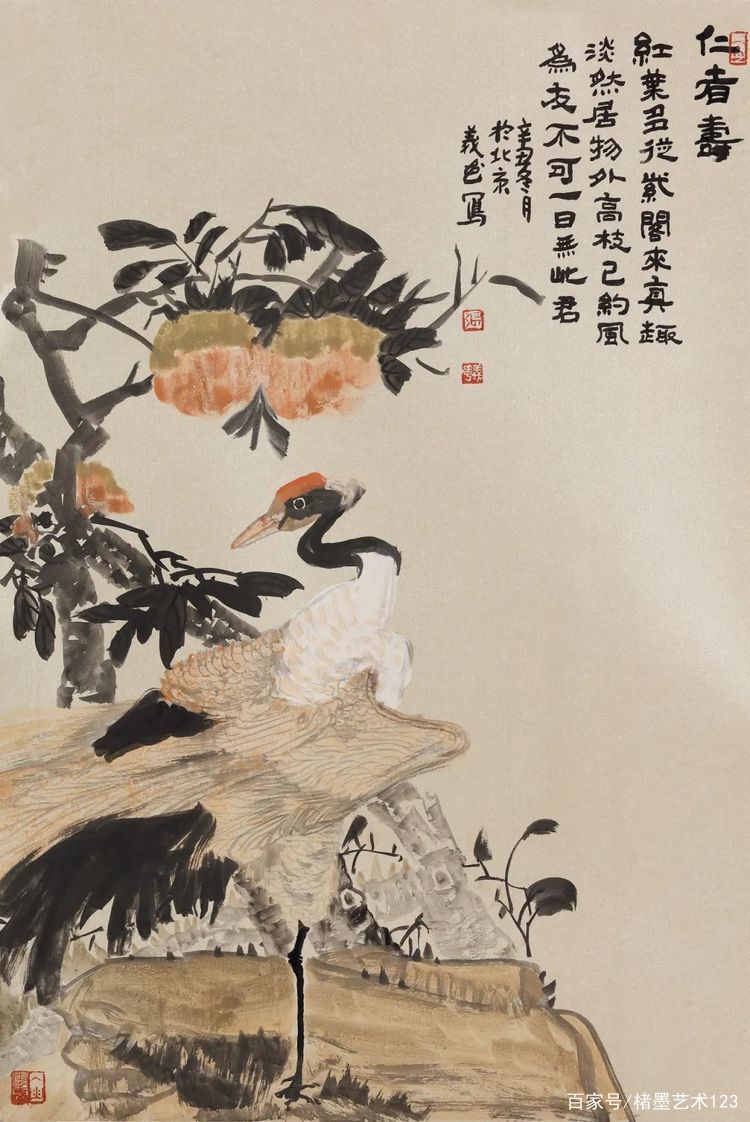 仁者壽
紅葉多從紫閣來真趣
淡然居物外高枝已約風
為友不可一日無此君
辛丑冬月
於北京
義色寫
張
百家号/楮墨艺术123